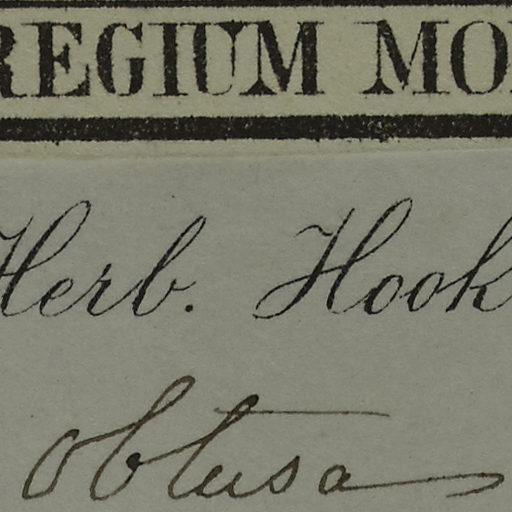 REGIUM MO
Herb. Hook
obtusa